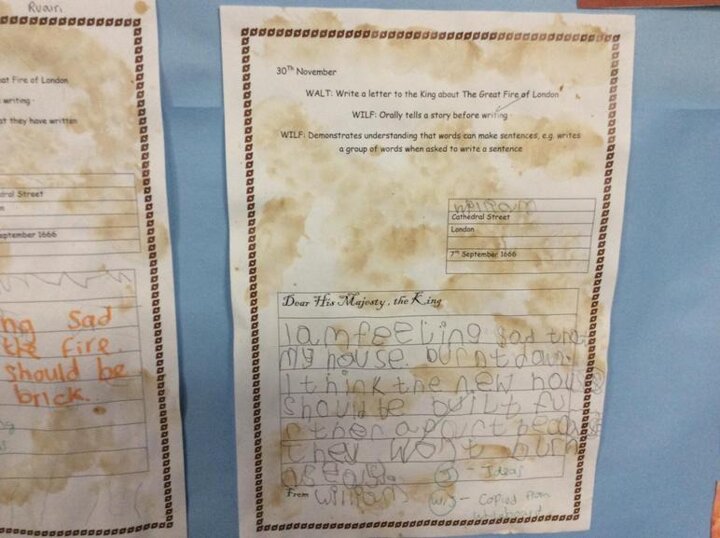 Ruairi
at Fire of London
writing
at they have written
dral Street
eptember 1666
ng Sad
the fire.
should be
brick.
30Th November
WALT: Write a letter to the King about The Great Fire of London
WILF: Orally tells a story before writing
WILF: Demonstrates understanding that words can make sentences, e.g. writes
a group of words when asked to write a sentence
William
Cathedral Street
London
7th September 1666
Dear His Majesty, the King
I am feeling sad that
my house burnt down.
I think the new hou
should be built fu
rther apart because
they wont burn
as easily.
From William
- Ideas
- Copied from
whiteboard